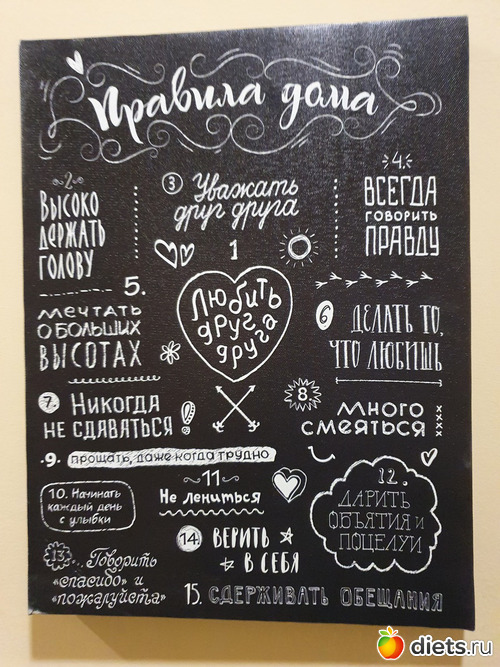 Правила дома
-2-
Высоко
держать
голову
3 Уважать
друг друга
4.
Всегда
говорить
правду
1
Любить
друг
друга
5.
мечтать
о больших
высотах
6 Делать то,
что любишь
7. Никогда
не сдаваться
8.
много
смеяться
xxxx
9. прощать, даже когда трудно
10. Начинать
каждый день
с улыбки
-11-
Не лениться
12.
Дарить
объятия и
поцелуи
13. Говорить
«спасибо» и
«пожалуйста»
14. Верить
в себя
15. Сдерживать обещания
diets.ru